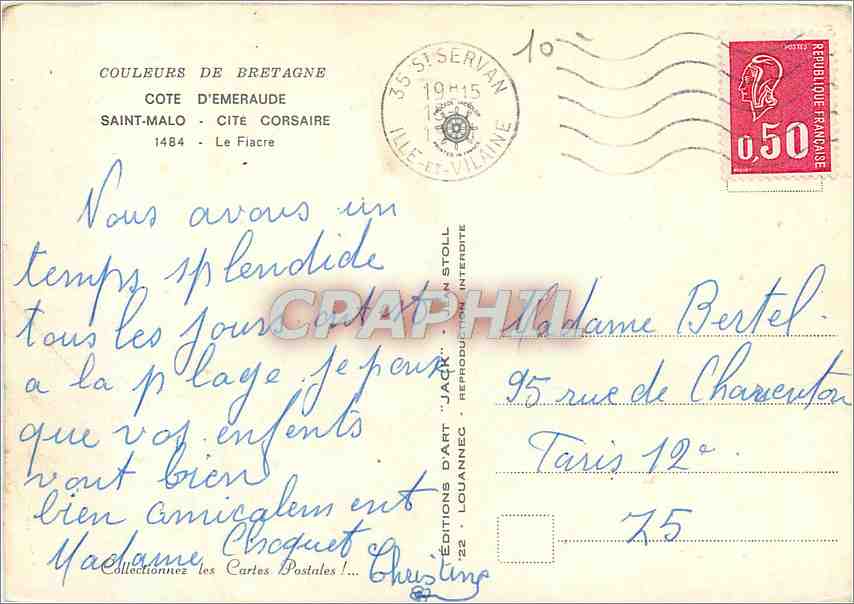 COULEURS DE BRETAGNE
COTE D'EMERAUDE
SAINT-MALO - CITÉ CORSAIRE
1484 - Le Fiacre
35 St SERVAN
19H15
ILLE-ET-VILAINE
10
REPUBLIQUE FRANÇAISE
0,50
Nous avons un
temps splendide
tous les jours
a la plage. je
que vos enfents
vont bien
bien amicalement
Madame
Christine
Collectionnez les Cartes Postales !...
CPARAMA
ÉDITIONS D'ART "JACK" -
22 - LOUANNEC - REPRODUCTION INTERDITE
Madame Bertel.
95 rue de Charenton
Paris 12e
75